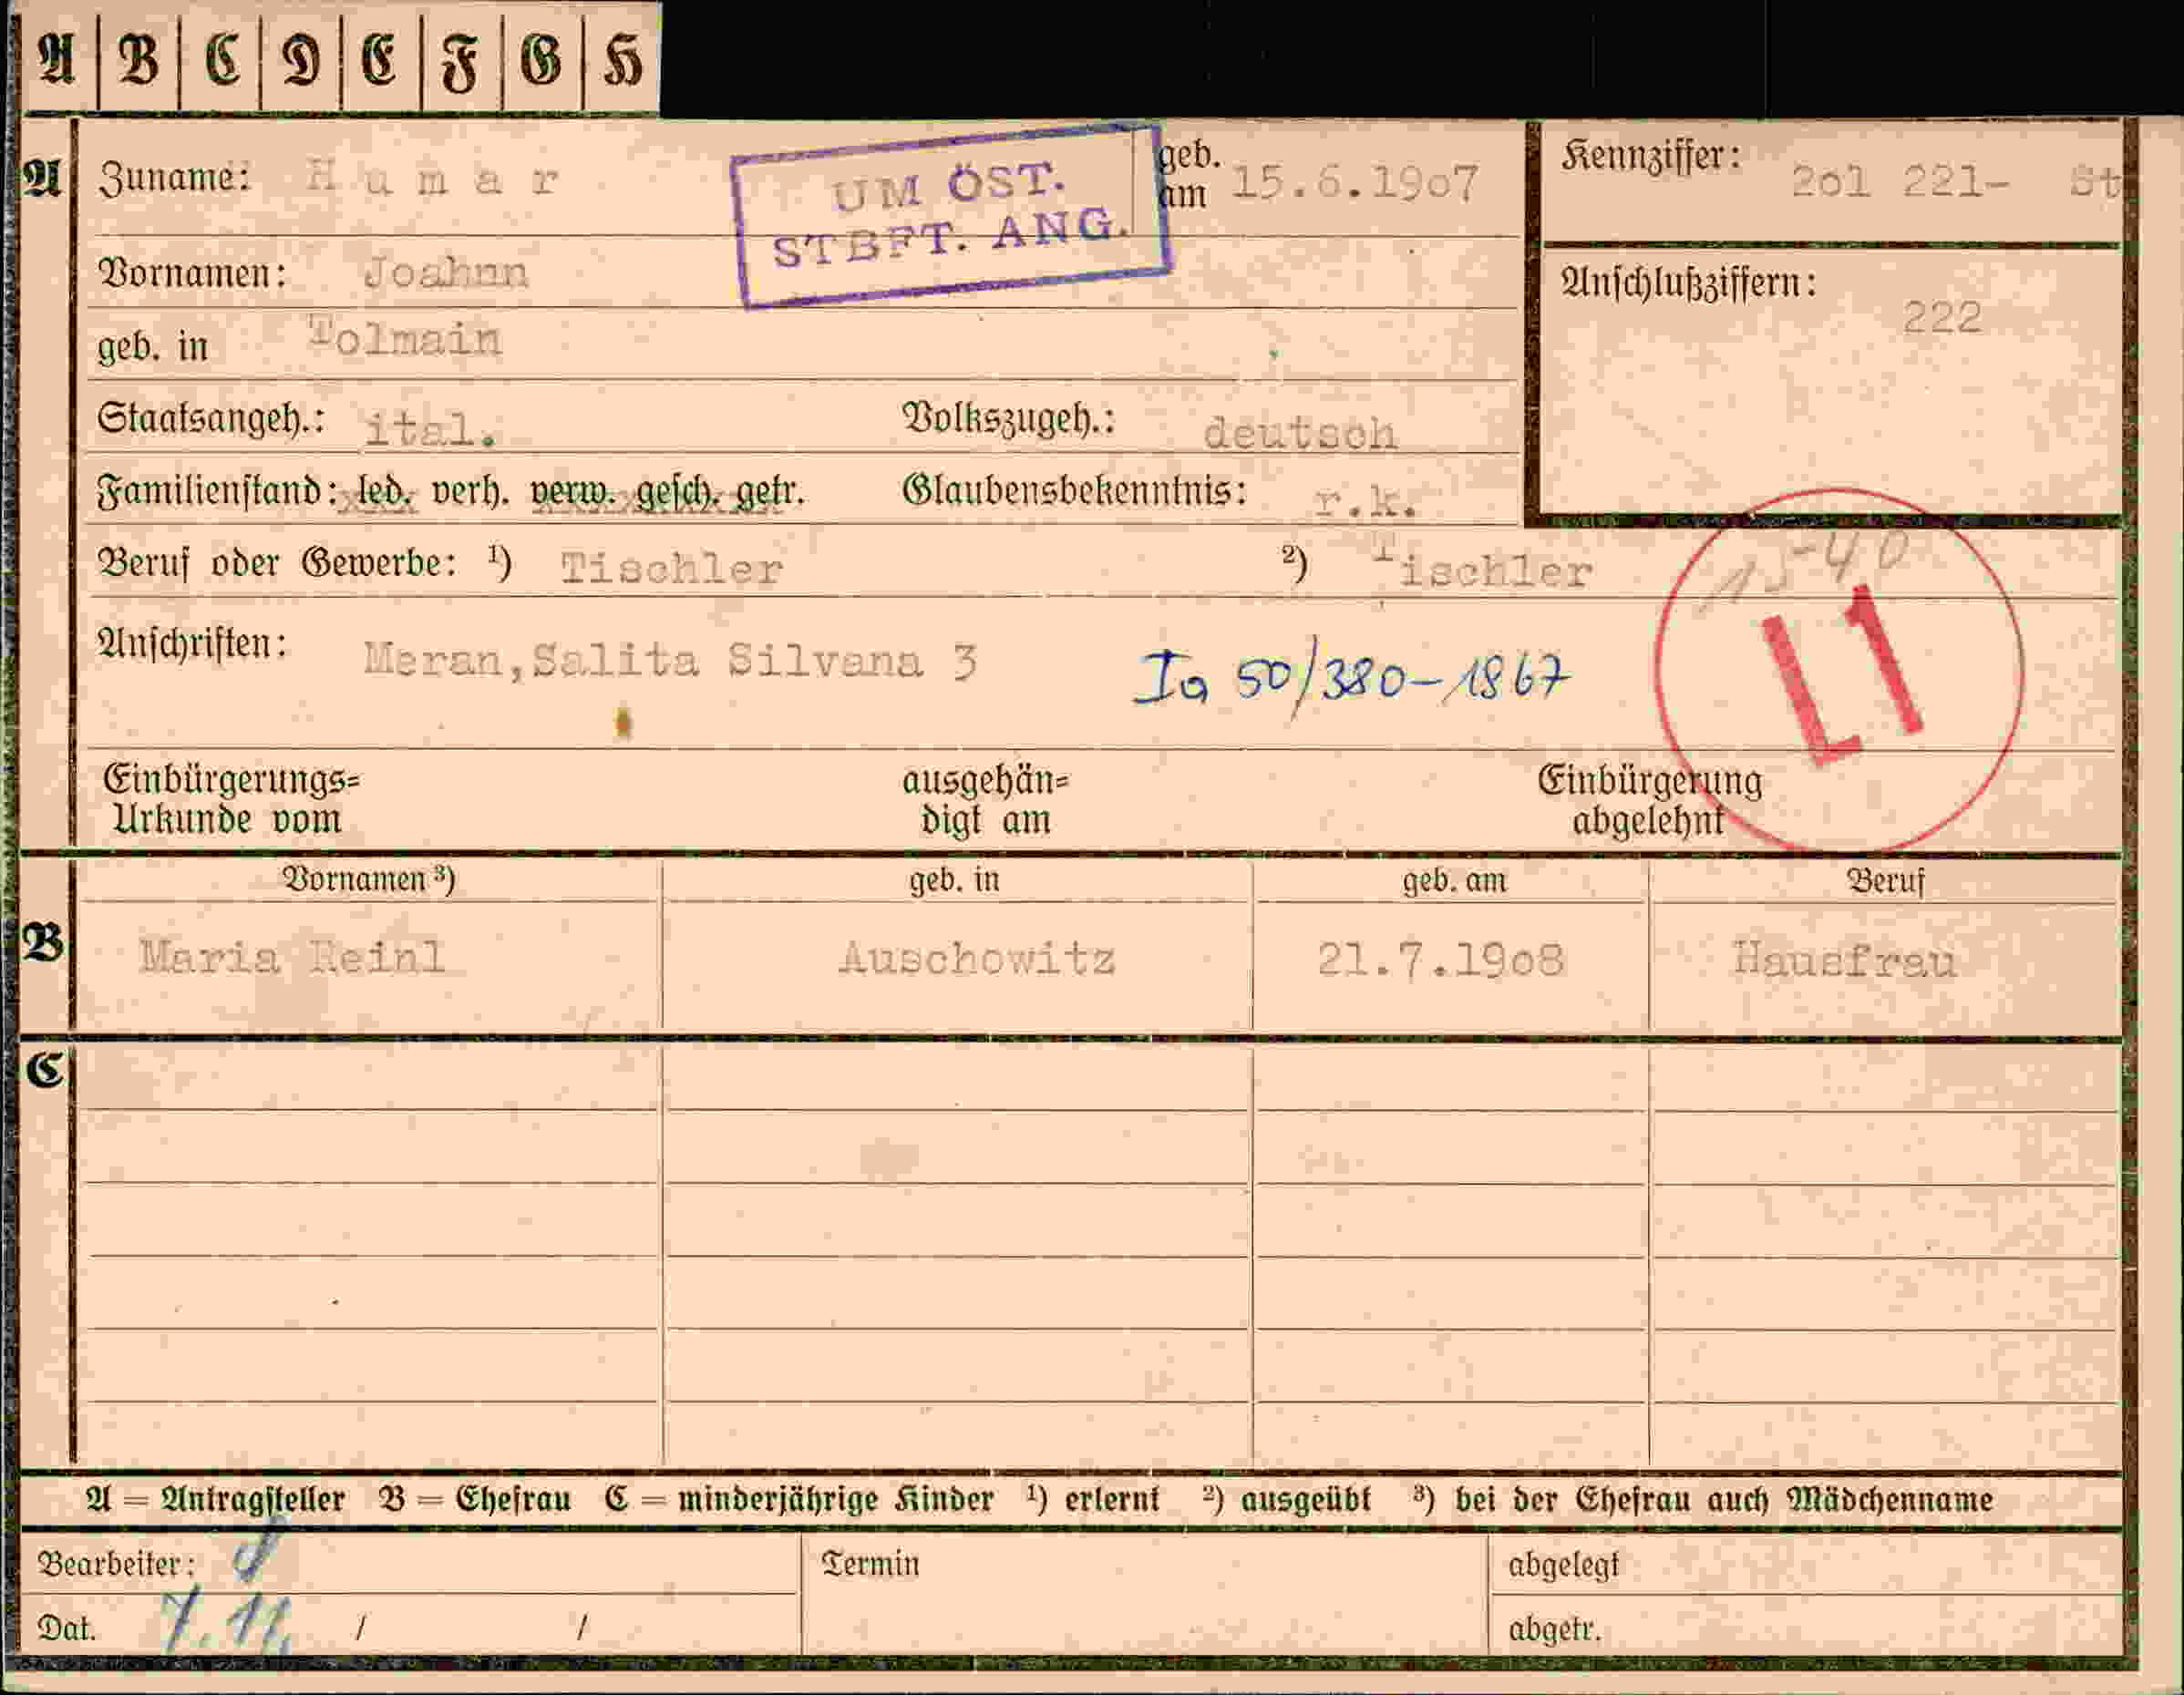 A B C D E F G H
A Zuname: Humar geb. am 15.6.19o7 Kennziffer: 2o1 221- St
UM ÖST.
STBFT. ANG.
Vornamen: Joahnn
Anschlußziffern: 222
geb. in Tolmain
Staatsangeh.: ital. Volkszugeh.: deutsch
Familienstand: led. verh. verw. gesch. getr. Glaubensbekenntnis: r.k.
Beruf oder Gewerbe: ¹) Tischler ²) Tischler
Anschriften: Meran,Salita Silvana 3 Ia 50/380-1867
L1
Einbürgerungs=
Urkunde vom
ausgehän=
digt am
Einbürgerung
abgelehnt
Vornamen ³) geb. in geb. am Beruf
B Maria Reinl Auschowitz 21.7.19o8 Hausfrau
C
A = Antragsteller B = Ehefrau C = minderjährige Kinder ¹) erlernt ²) ausgeübt ³) bei der Ehefrau auch Mädchenname
Bearbeiter: Termin abgelegt
Dat. 7.11. / / abgetr.